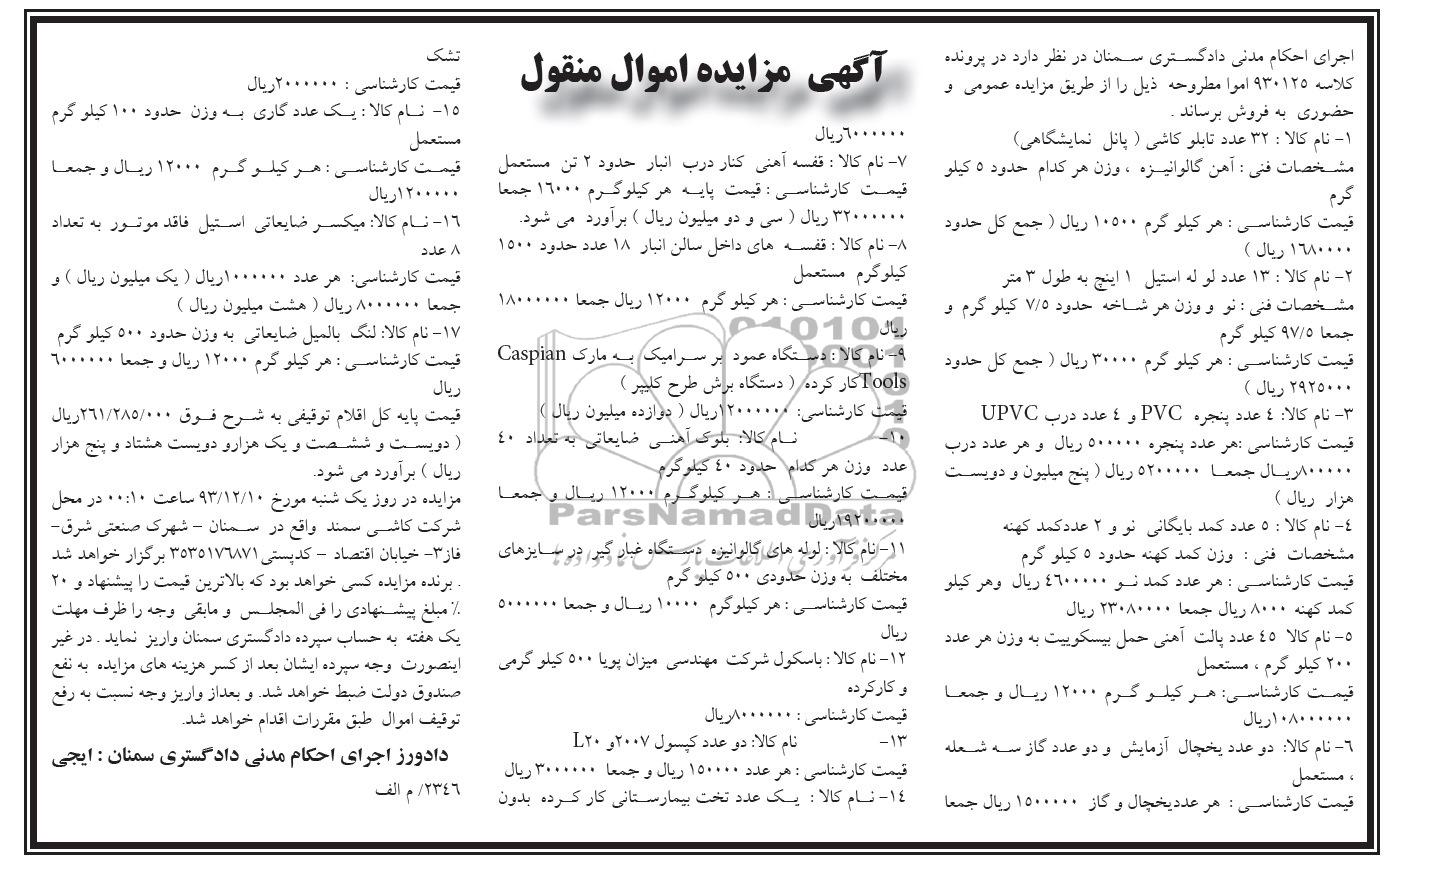 آگهی مزایده اموال منقول
اجرای احکام مدنی دادگستری سمنان در نظر دارد در پرونده
کلاسه ۹۳۰۱۲۵ اموا مطروحه ذیل را از طریق مزایده عمومی و
حضوری به فروش برساند .
۱- نام کالا : ۳۲ عدد تابلو کاشی ( پانل نمایشگاهی)
مشخصات فنی : آهن گالوانیزه ، وزن هر کدام حدود ۵ کیلو
گرم
قیمت کارشناسی : هر کیلو گرم ۱۰۵۰۰ ریال ( جمع کل حدود
۱۶۸۰۰۰۰ ریال )
۲- نام کالا : ۱۳ عدد لو له استیل ۱ اینچ به طول ۳ متر
مشخصات فنی : نو و وزن هر شاخه حدود ۷/۵ کیلو گرم و
جمعا ۹۷/۵ کیلو گرم
قیمت کارشناسی : هر کیلو گرم ۳۰۰۰۰ ریال ( جمع کل حدود
۲۹۲۵۰۰۰ ریال )
۳- نام کالا: ۴ عدد پنجره PVC و ۴ عدد درب UPVC
قیمت کارشناسی :هر عدد پنجره ۵۰۰۰۰۰ ریال و هر عدد درب
۸۰۰۰۰۰ریال جمعا ۵۲۰۰۰۰۰ ریال ( پنج میلیون و دویست
هزار ریال )
۴- نام کالا : ۵ عدد کمد بایگانی نو و ۲ عددکمد کهنه
مشخصات فنی : وزن کمد کهنه حدود ۵ کیلو گرم
قیمت کارشناسی : هر عدد کمد نو ۴۶۰۰۰۰۰ ریال وهر کیلو
کمد کهنه ۸۰۰۰ ریال جمعا ۲۳۰۸۰۰۰۰ ریال
۵- نام کالا ۴۵ عدد پالت آهنی حمل بیسکوییت به وزن هر عدد
۲۰۰ کیلو گرم ، مستعمل
قیمت کارشناسی: هر کیلو گرم ۱۲۰۰۰ ریال و جمعا
۱۰۸۰۰۰۰۰۰ریال
۶- نام کالا: دو عدد یخچال آزمایش و دو عدد گاز سه شعله
، مستعمل
قیمت کارشناسی : هر عددیخچال و گاز ۱۵۰۰۰۰۰ ریال جمعا
۶۰۰۰۰۰۰ریال
۷- نام کالا : قفسه آهنی کنار درب انبار حدود ۲ تن مستعمل
قیمت کارشناسی : قیمت پایه هر کیلوگرم ۱۶۰۰۰ جمعا
۳۲۰۰۰۰۰۰ ریال ( سی و دو میلیون ریال ) برآورد می شود.
۸- نام کالا : قفسه های داخل سالن انبار ۱۸ عدد حدود ۱۵۰۰
کیلوگرم مستعمل
قیمت کارشناسی : هر کیلو گرم ۱۲۰۰۰ ریال جمعا ۱۸۰۰۰۰۰۰
ریال
۹- نام کالا : دستگاه عمود بر سرامیک به مارک Caspian
Toolsکار کرده ( دستگاه برش طرح کلیپر )
قیمت کارشناسی: ۱۲۰۰۰۰۰۰ریال ( دوازده میلیون ریال )
۱۰- نام کالا: بلوک آهنی ضایعاتی به تعداد ۴۰
عدد وزن هر کدام حدود ۴۰ کیلوگرم
قیمت کارشناسی : هر کیلوگرم ۱۲۰۰۰ ریال و جمعا
۱۹۲۰۰۰۰۰ریال
۱۱- نام کالا : لوله های گالوانیزه دستگاه غبار گیر در سایزهای
مختلف به وزن حدودی ۵۰۰ کیلو گرم
قیمت کارشناسی : هر کیلوگرم ۱۰۰۰۰ ریال و جمعا ۵۰۰۰۰۰۰
ریال
۱۲- نام کالا : باسکول شرکت مهندسی میزان پویا ۵۰۰ کیلو گرمی
و کارکرده
قیمت کارشناسی : ۸۰۰۰۰۰۰ریال
۱۳- نام کالا: دو عدد کپسول ۲۰۰۷و L۲۰
قیمت کارشناسی : هر عدد ۱۵۰۰۰۰ ریال و جمعا ۳۰۰۰۰۰۰ ریال
۱۴- نام کالا : یک عدد تخت بیمارستانی کار کرده بدون
تشک
قیمت کارشناسی : ۲۰۰۰۰۰۰ریال
۱۵- نام کالا : یک عدد گاری به وزن حدود ۱۰۰ کیلو گرم
مستعمل
قیمت کارشناسی : هر کیلو گرم ۱۲۰۰۰ ریال و جمعا
۱۲۰۰۰۰۰ریال
۱۶- نام کالا: میکسر ضایعاتی استیل فاقد موتور به تعداد
۸ عدد
قیمت کارشناسی: هر عدد ۱۰۰۰۰۰۰ریال ( یک میلیون ریال ) و
جمعا ۸۰۰۰۰۰۰ ریال ( هشت میلیون ریال )
۱۷- نام کالا: لنگ بالمیل ضایعاتی به وزن حدود ۵۰۰ کیلو گرم
قیمت کارشناسی : هر کیلو گرم ۱۲۰۰۰ ریال و جمعا ۶۰۰۰۰۰۰
ریال
قیمت پایه کل اقلام توقیفی به شرح فوق ۲۶۱/۲۸۵/۰۰۰ریال
( دویست و ششصت و یک هزارو دویست هشتاد و پنج هزار
ریال ) برآورد می شود.
مزایده در روز یک شنبه مورخ ۹۳/۱۲/۱۰ ساعت ۰۰:۱۰ در محل
شرکت کاشی سمند واقع در سمنان - شهرک صنعتی شرق-
فاز۳- خیابان اقتصاد - کدپستی۳۵۳۵۱۷۶۸۷۱ برگزار خواهد شد
. برنده مزایده کسی خواهد بود که بالاترین قیمت را پیشنهاد و ۲۰
٪ مبلغ پیشنهادی را فی المجلس و مابقی وجه را ظرف مهلت
یک هفته به حساب سپرده دادگستری سمنان واریز نماید . در غیر
اینصورت وجه سپرده ایشان بعد از کسر هزینه های مزایده به نفع
صندوق دولت ضبط خواهد شد. و بعداز واریز وجه نسبت به رفع
توقیف اموال طبق مقررات اقدام خواهد شد.
دادورز اجرای احکام مدنی دادگستری سمنان : ایجی
۲۳۴۶/ م الف
ParsNamadData